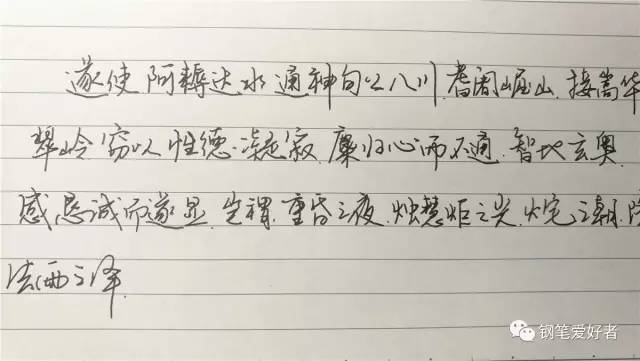 遂使阿耨达水通神甸之八川.耆阇崛山.接嵩华
翠岭窃以性德.凝寂.麋归心而不通.智地玄奥.
感恳诚而遂显.岂谓.重昏之夜.烛慧炬之光.火宅之朝.降
法雨之泽.
钢笔爱好者